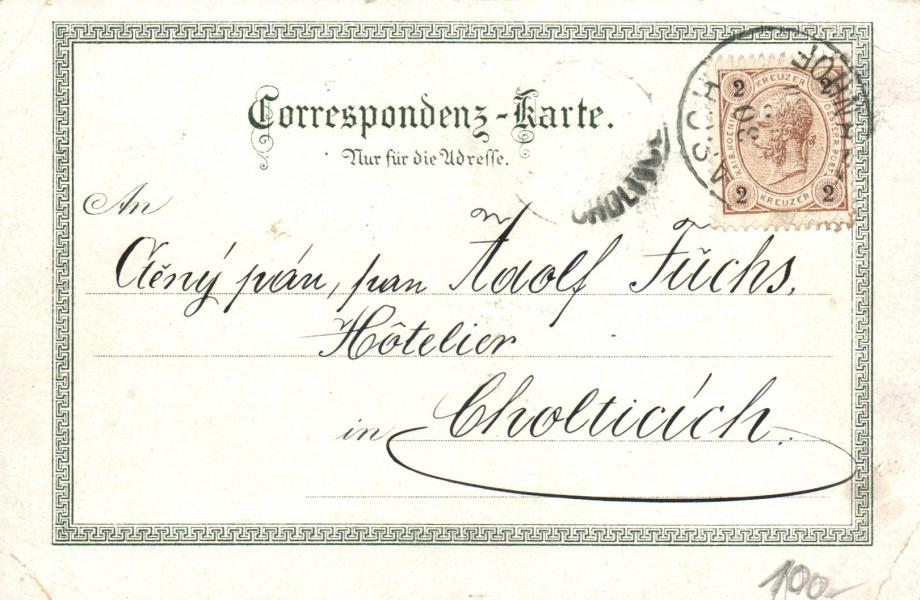 Correspondenz-Karte.
Nur für die Adresse.
An
Ctěný pán, pan Adolf Fuchs,
Hôtelier
in Cholticích.
2 KREUZER 2
KAIS. KOENIGL. OESTERR. POST.
2 KREUZER 2
ASCH
30
CHOLTICE
100-